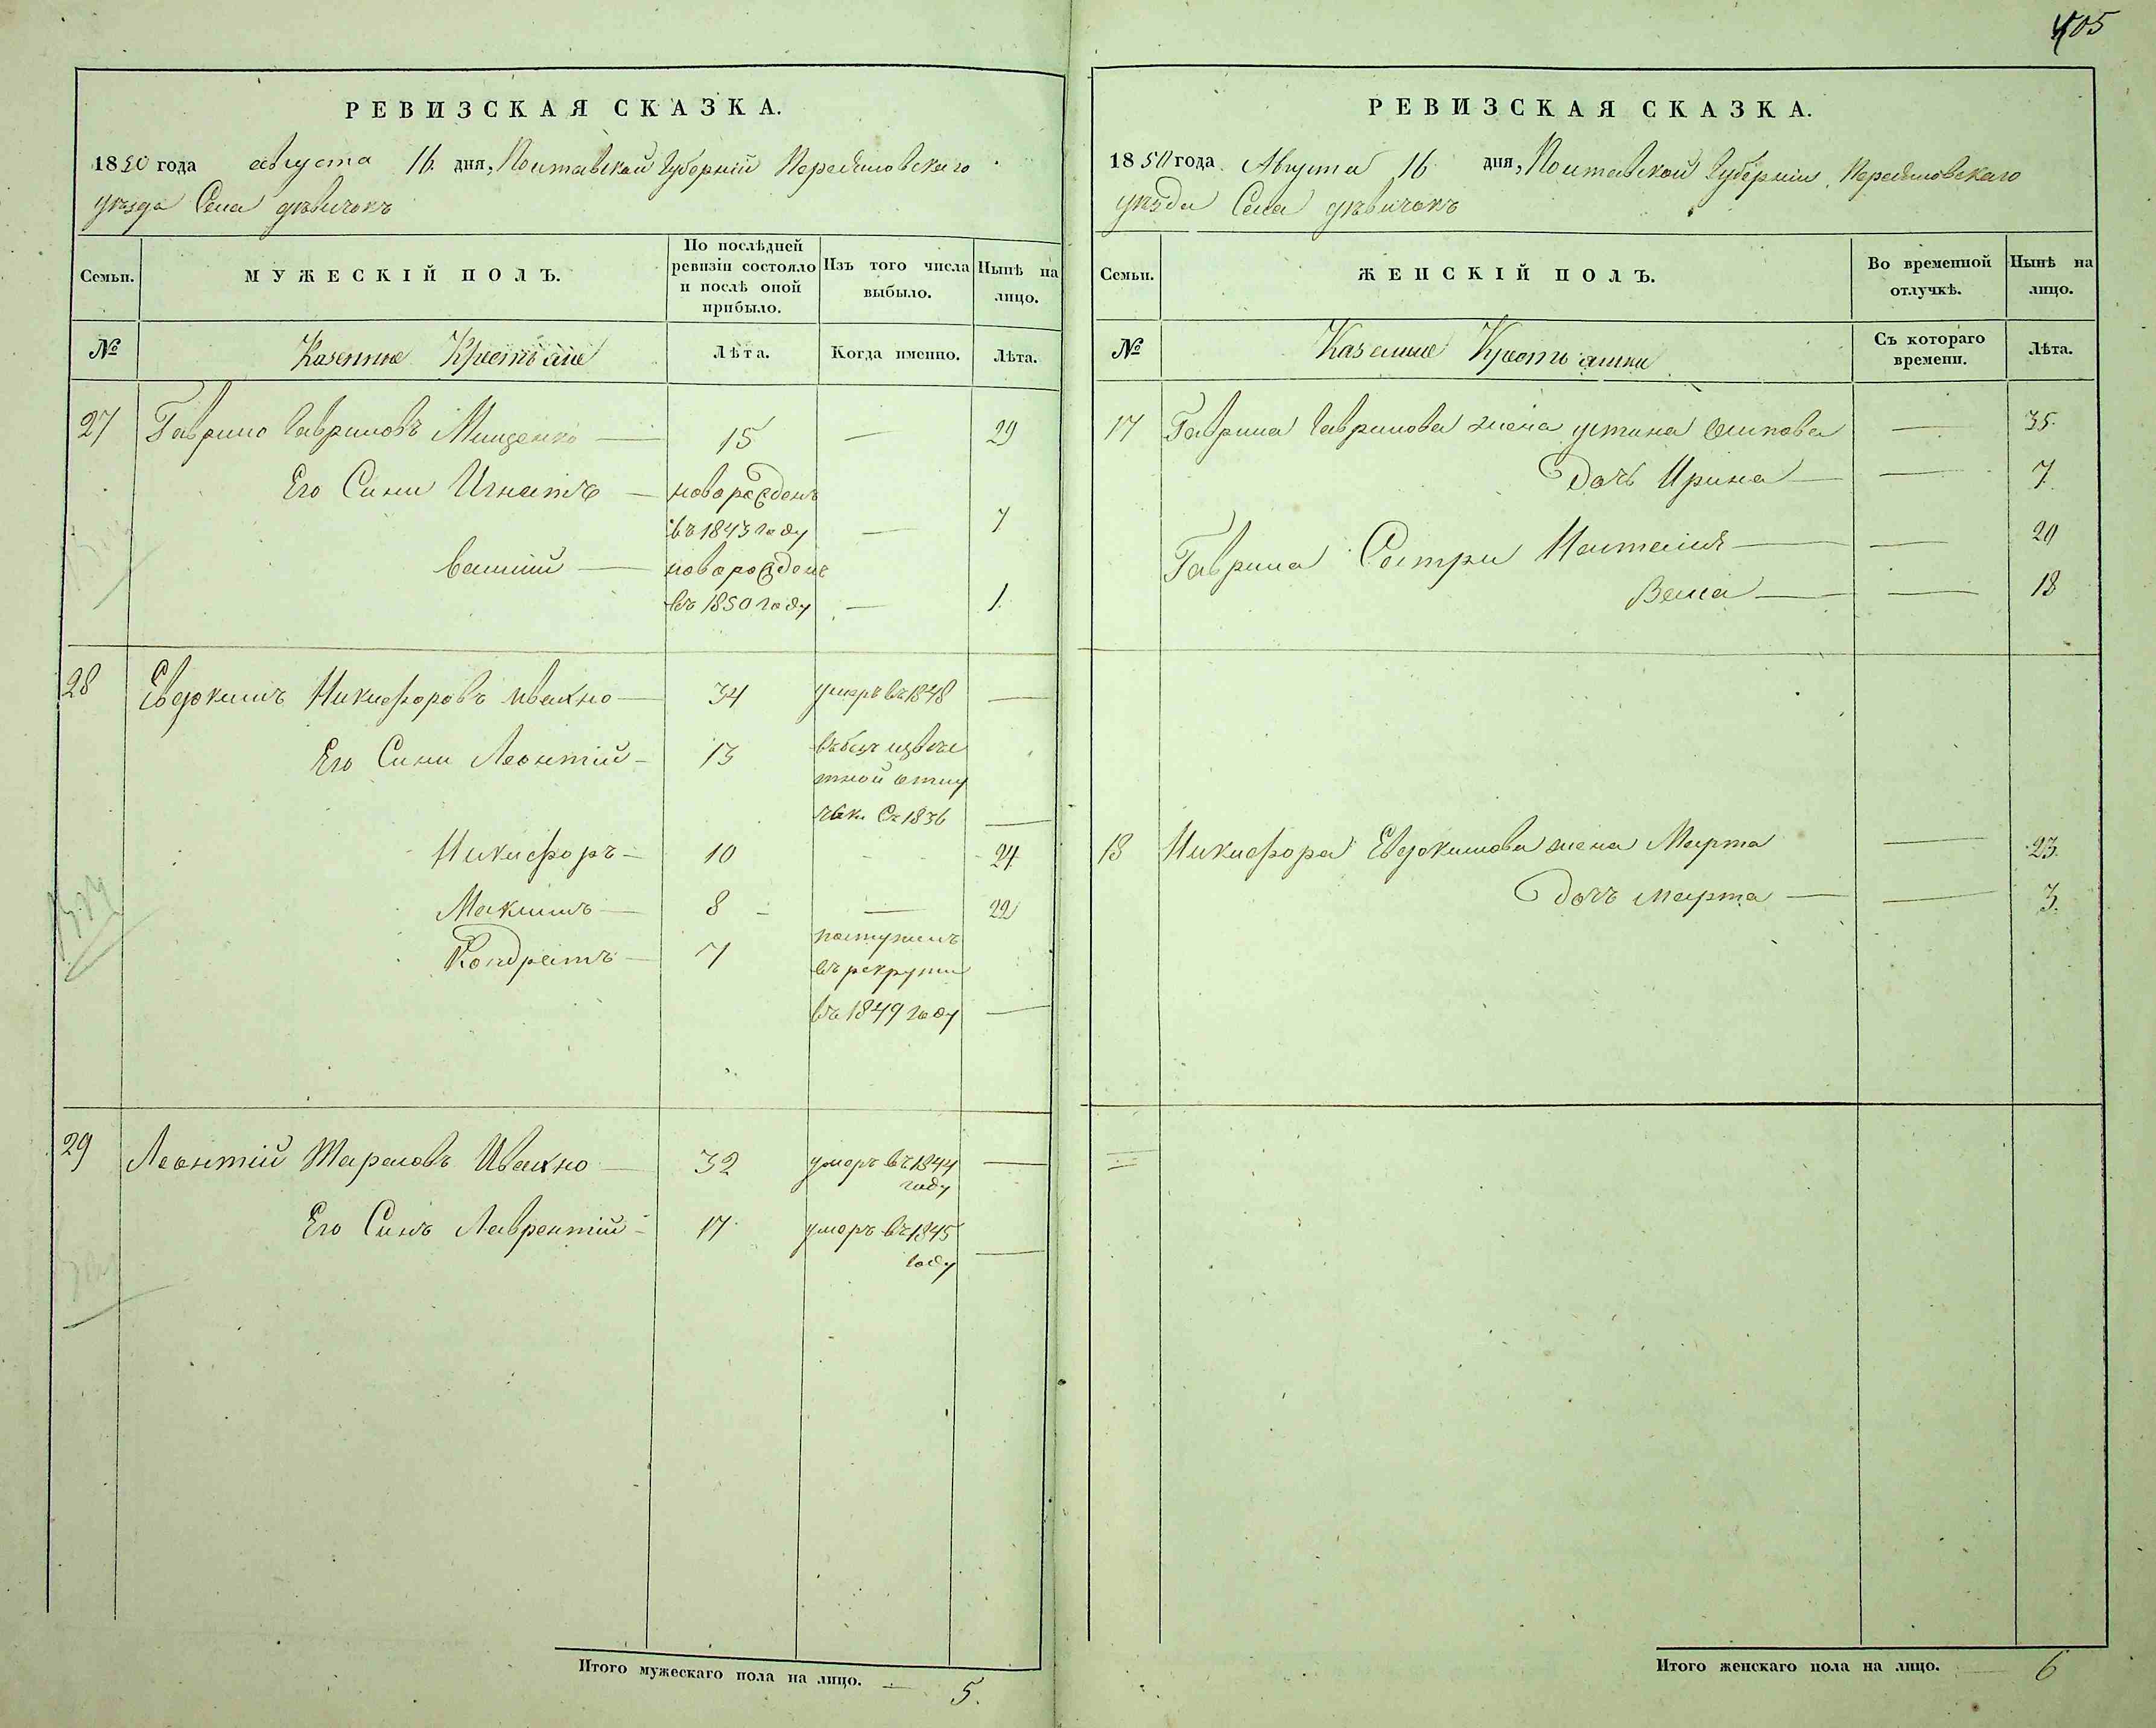 405
РЕВИЗСКАЯ СКАЗКА.
1850 года августа 16. дня, Полтавской Губерніи Переяславскаго
уѣзда Села дѣвичокъ
Семьи.
МУЖЕСКІЙ ПОЛЪ.
По послѣдней ревизіи состояло и послѣ оной прибыло.
Изъ того числа выбыло.
Нынѣ на лицо.
№
Казенные Крестьяне
Лѣта.
Когда именно.
Лѣта.
27 Гаврило Гавриловъ Мищенко — 15 — 29
Его Сини Игнатъ — новорожденъ
въ 1843 году — 7
Василій — новорожденъ
въ 1850 году — 1
28 Евдокимъ Никифоровъ Ивахно — 34 умеръ въ 1848 —
Его Сини Леонтій — 13 въ безъ извѣс
тной отлу
чки Съ 1836 —
Никифоръ — 10 - - 24
Максимъ — 8 — 22
Кондратъ — 7 поступилъ
въ рекруты
въ 1849 году —
29 Леонтій Тарасовъ Ивахно — 32 умеръ въ 1844 —
году
Его Синъ Лаврентій — 17 умеръ въ 1845
году —
Итого мужескаго пола на лицо. — 5.
РЕВИЗСКАЯ СКАЗКА.
1850 года. Августа 16 дня, Полтавской Губерніи, Переяславскаго
уѣзда Села дѣвичокъ
Семьи.
ЖЕНСКІЙ ПОЛЪ.
Во временной отлучкѣ.
Нынѣ на лицо.
№
Казенные Крестьянки
Съ котораго времени.
Лѣта.
17 Гаврила Гаврилова жена устина Осипова — 35.
Дочь Ирина — — 7.
Гаврила Сестри Наталия — — 20
Васса — — 18
18 Никифора Евдокимова жена Марта — 23.
Дочъ Марта — — 3.
Итого женскаго пола на лицо. — 6